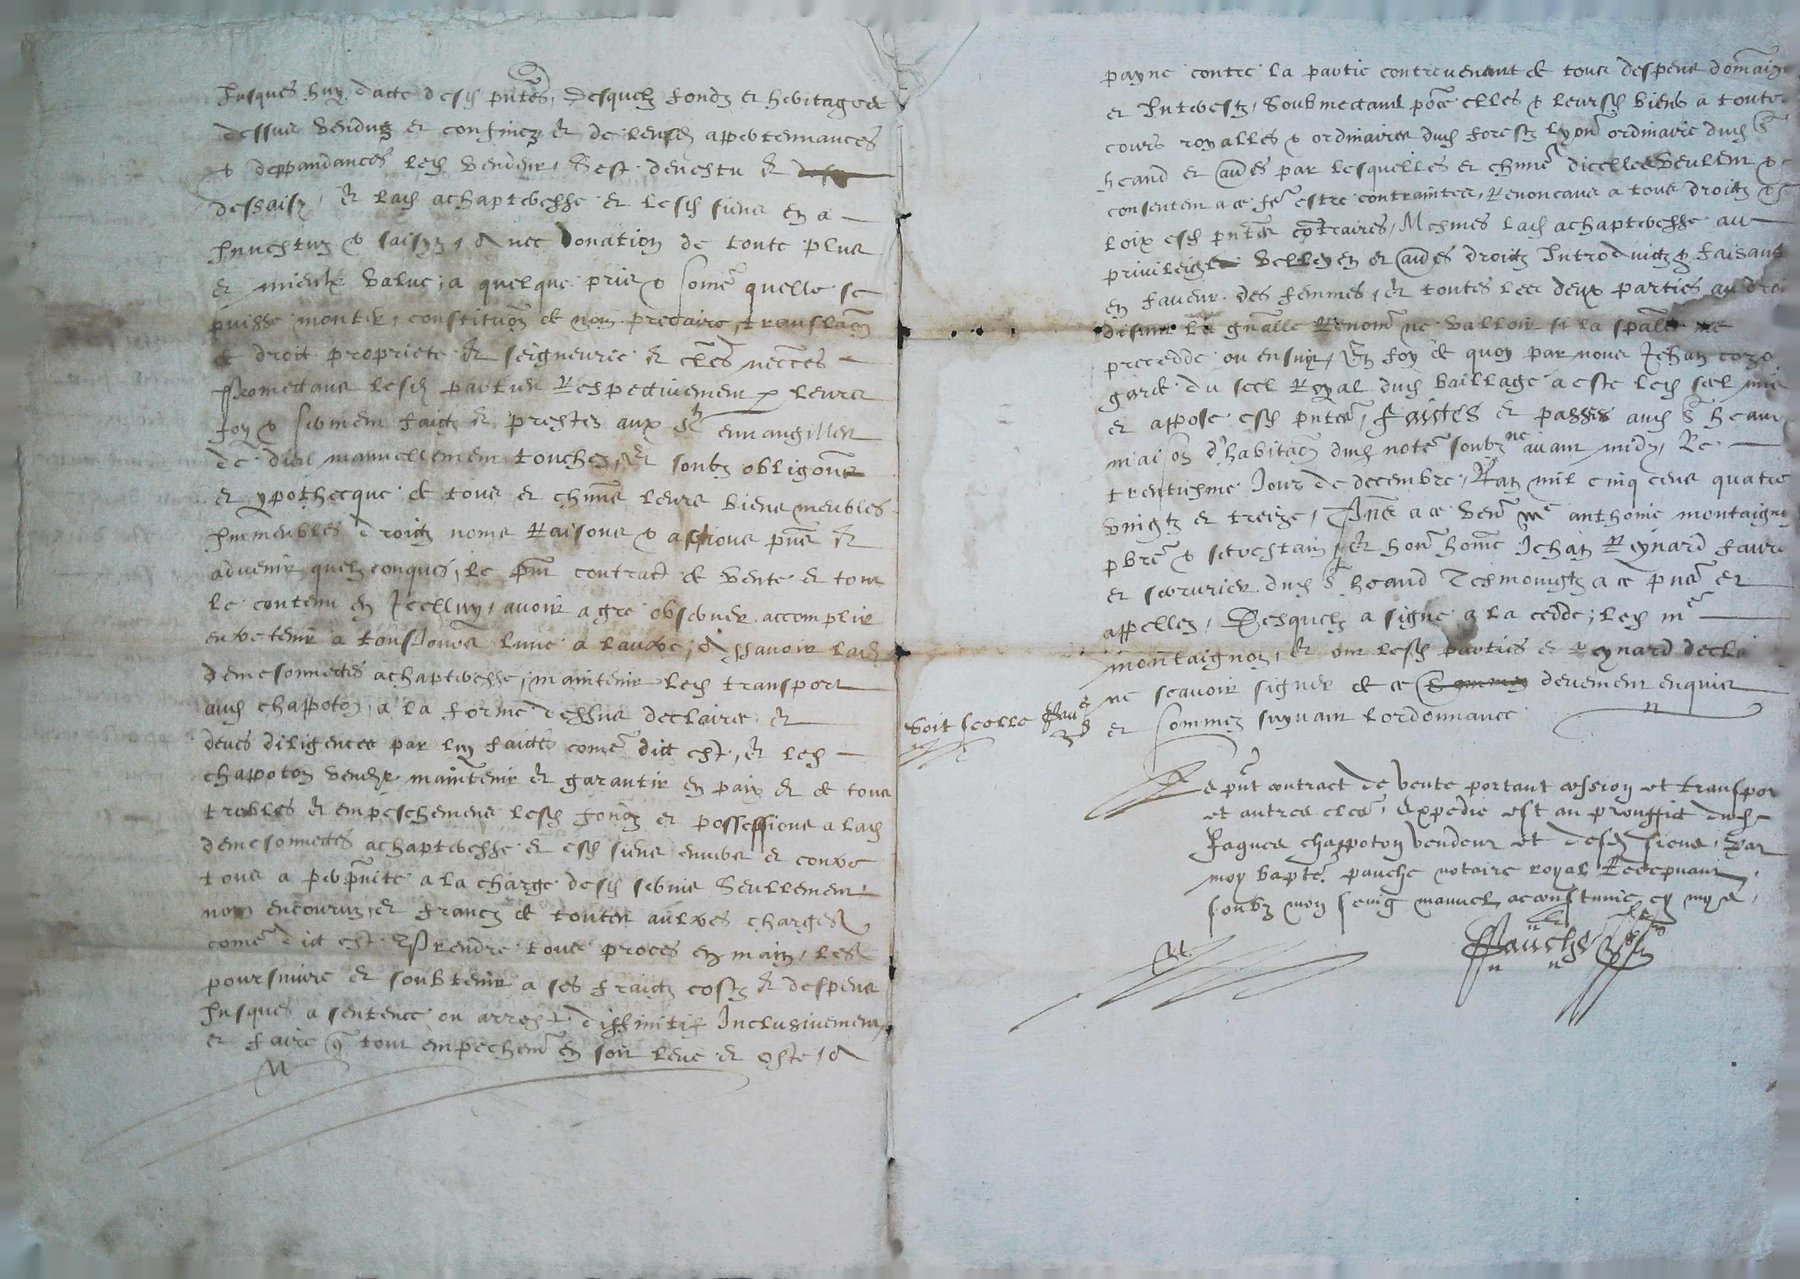 Jusques huy datte desd pntes, Desquelz fondz et heritages
dessus venduz et confinez et de leursd appertenances
& deppandances led vendeur, sest devestu et
dessaisy, et lad achapteresse et lesd siens en a
Investuz & saisyz, Avec donation de toute plus
et mieulx value, a quelque pris & some quelle se
puisse monter, constitution de nom precaire, translaon
de droit propriete et seigneurie et cles necces
Promectans lesd parties Respectivement p leurs
foy & serment faictz et prestez aux st euvangilles
de dieu manuellement touchez, et soubz obligons
et ypothecque de tous et chuns leurs biens meubles
Immeubles droictz noms Raisons & actions pns et
advenir quelzconques, le pnt contract de vente et tout
le contenu en Icelluy, avoir a gre observer accomplir
entretenir a tousjours lune a lautre, A scavoir lad
demesonnettes achapteresse, maintenir led transport
aud chappoton, a la forme dessus declairee, et
deues diligences par luy faictes come dict est, et led
chappoton vendr maintenir et garantir en paix et de tous
trobles et empeschemens lesd fondz et possessions a lad
demesonnettes achapteresse et esd siens envers et contre
tous a perpnite a la charge desd servis seullement
non encouruz, et francz de toutes aultres charges
come dict est, Prendre tous proces en main, les
poursuivre et soubtenir a ses fraictz costz et despens
Jusques a sentence ou arrest diffinitif Inclusivement,
et faire q tout empechemt en soit leve et oste, A
payne contre la partie contrevenent de tous despens domaiges
et Interestz, Soubmectans pour ce elles & leursd biens a toutes
cours royalles & ordinaires dud forestz lyon ordinaire dud St
heand et aues par lesquelles et chune dicelles veullent &
consentent a ce fe estre contrainctes, Renonceans a tous droictz &
loix esd pntes contraires, Mesmes lad achapteresse au
privileige velleyen et aues droictz Introduictz & faisans
en faveur des femmes, et toutes les deux parties au droit
disant la gnalle Renonon ne valloir si la spale ne
precedde ou ensuyt, En foy de quoy par nous Jehan
garde du scel Royal dud bailliage a este led scel mis
et appose esd pntes, Faictes et passes aud St heand
maison dhabitaon dud note soubzne avant midy, Le
trentiesme Jour de decembre, Lan mil cinq cens quatre
vingtz et treize, Pns a ce vene me anthoine montaignon
pbre & secrestain, et hone home Jehan Reynard faure
et serrurier dud St heand Tesmoingtz a ce pns et
appellez, Desquelz a signe a la cedde, led me
montaignon, et non lesd parties et Reynard declai
ne scavoir signer de ce deuement enquis
Soit scelle
et sommez suyvant lordonnance
Le pnt contract de vente portant cession et transport
et autres cles, expedie est au prouffit dud
Jaques chappoton vendeur et desd siens, Par
moy bapte pauche notaire royal Recepvant
soubz mon seing manuel accoustume cy mys,
Pauche